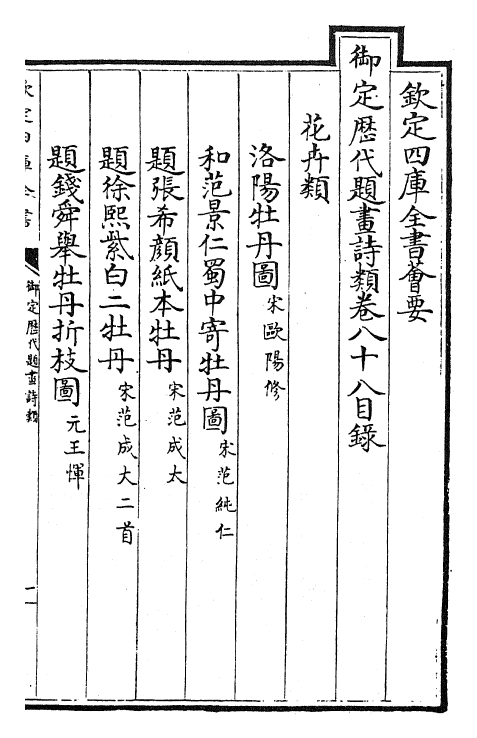 欽定四庫全書薈要
御定歷代題畫詩類卷八十八目錄
花卉類
洛陽牡丹圖 宋歐陽修
和范景仁蜀中寄牡丹圖 宋范純仁
題張希顔紙本牡丹 宋范成大
題徐熙紫白二牡丹 宋范成大二首
題錢舜舉牡丹折枝圖 元王惲
欽定四庫全書
御定歷代題畫詩類
一